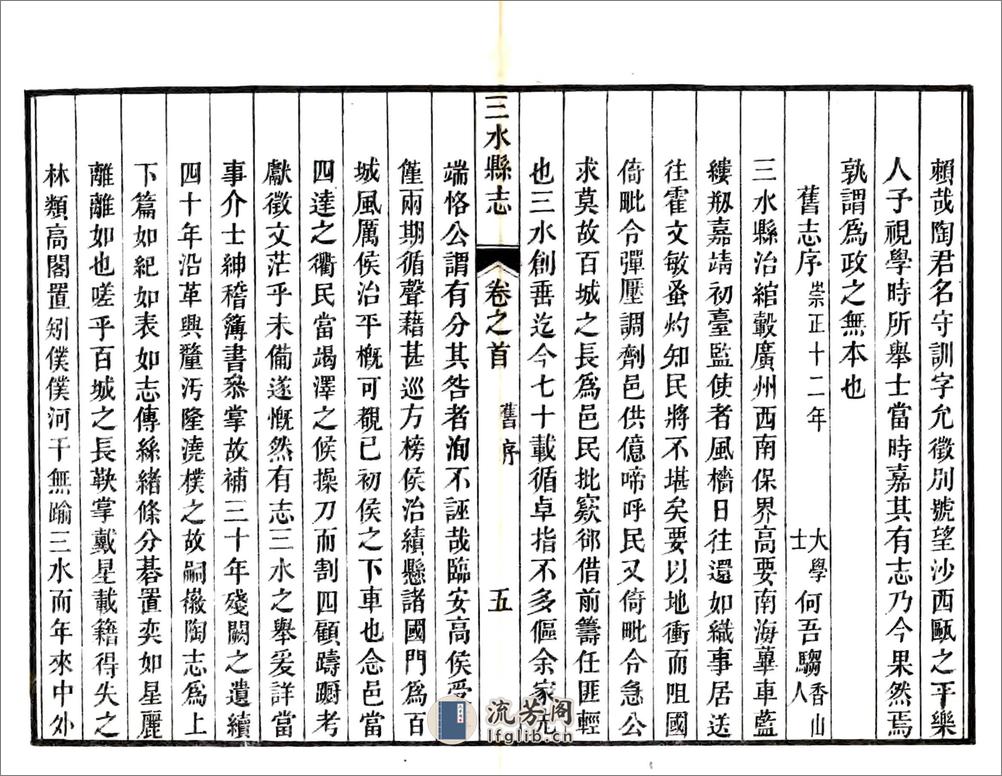 賴哉陶君名守訓字允徵別號望沙西甌之平樂
人予視學時所舉士當時嘉其有志乃今果然焉
孰謂爲政之無本也
舊志序 崇正十二年 大學士 何吾騶 香山人
三水縣治綰轂廣州西南保界高要南海蓽車藍
縷剏嘉靖初臺監使者風檣日往還如織事居送
往霍文敏蚤灼知民將不堪矣要以地衝而咀國
倚毗令彈壓調劑邑供億啼呼民又倚毗令急公
求莫故百城之長爲邑民批窾郤借前籌任匪輕
也三水創垂迄今七十載循卓指不多傴余家先
三水縣志 卷之首 舊序 五
端恪公謂有分其咎者洵不誣哉臨安高侯受
僅兩期循聲藉甚巡方榜侯治績懸諸國門爲百
城風厲侯治平槪可觀已初侯之下車也念邑當
四達之衢民當竭澤之候操刀而割四顧躊躕考
獻徵文茫乎未備遂慨然有志三水之舉爰詳當
事介士紳稽簿書叅掌故補三十年殘闕之遺續
四十年沿革興釐汚隆澆樸之故嗣徽陶志爲上
下篇如紀如表如志傳絲緒條分碁置奕如星麗
離離如也嗟乎百城之長鞅掌戴星載籍得失之
林類高閣置矧僕僕河干無踰三水而年來中外
流芳阁
lfglib.cn